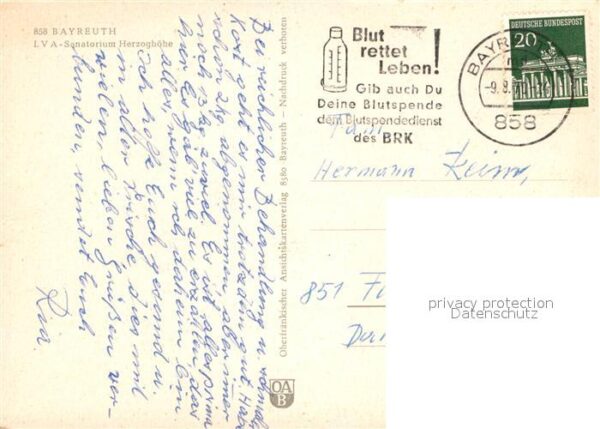 858 BAYREUTH
LVA-Sanatorium Herzoghöhe
Bei reichlicher Behandlung u. normal
Kost geht es mir trotzdem gut. Habe
schon 2 kg abgenommen aber immer
noch 13 kg zuviel. Es ist alles prima
hier. Es gäb viel zu erzählen, das
alles, wenn ich daheim bin.
Ich hoffe Euch gesund u.
in aller Frische dies mit
vielen lieben Grüßen ver-
bunden, sendet Euch
Oberfränkischer Ansichtskartenverlag 8580 Bayreuth — Nachdruck verboten
OA
B
Blut
rettet
Leben!
Gib auch Du
Deine Blutspende
dem Blutspendedienst
des BRK
DEUTSCHE BUNDESPOST
20
BAYR
-9.8.
858
Fam.
Hermann Keim,
851 Fü
privacy protection
Datenschutz